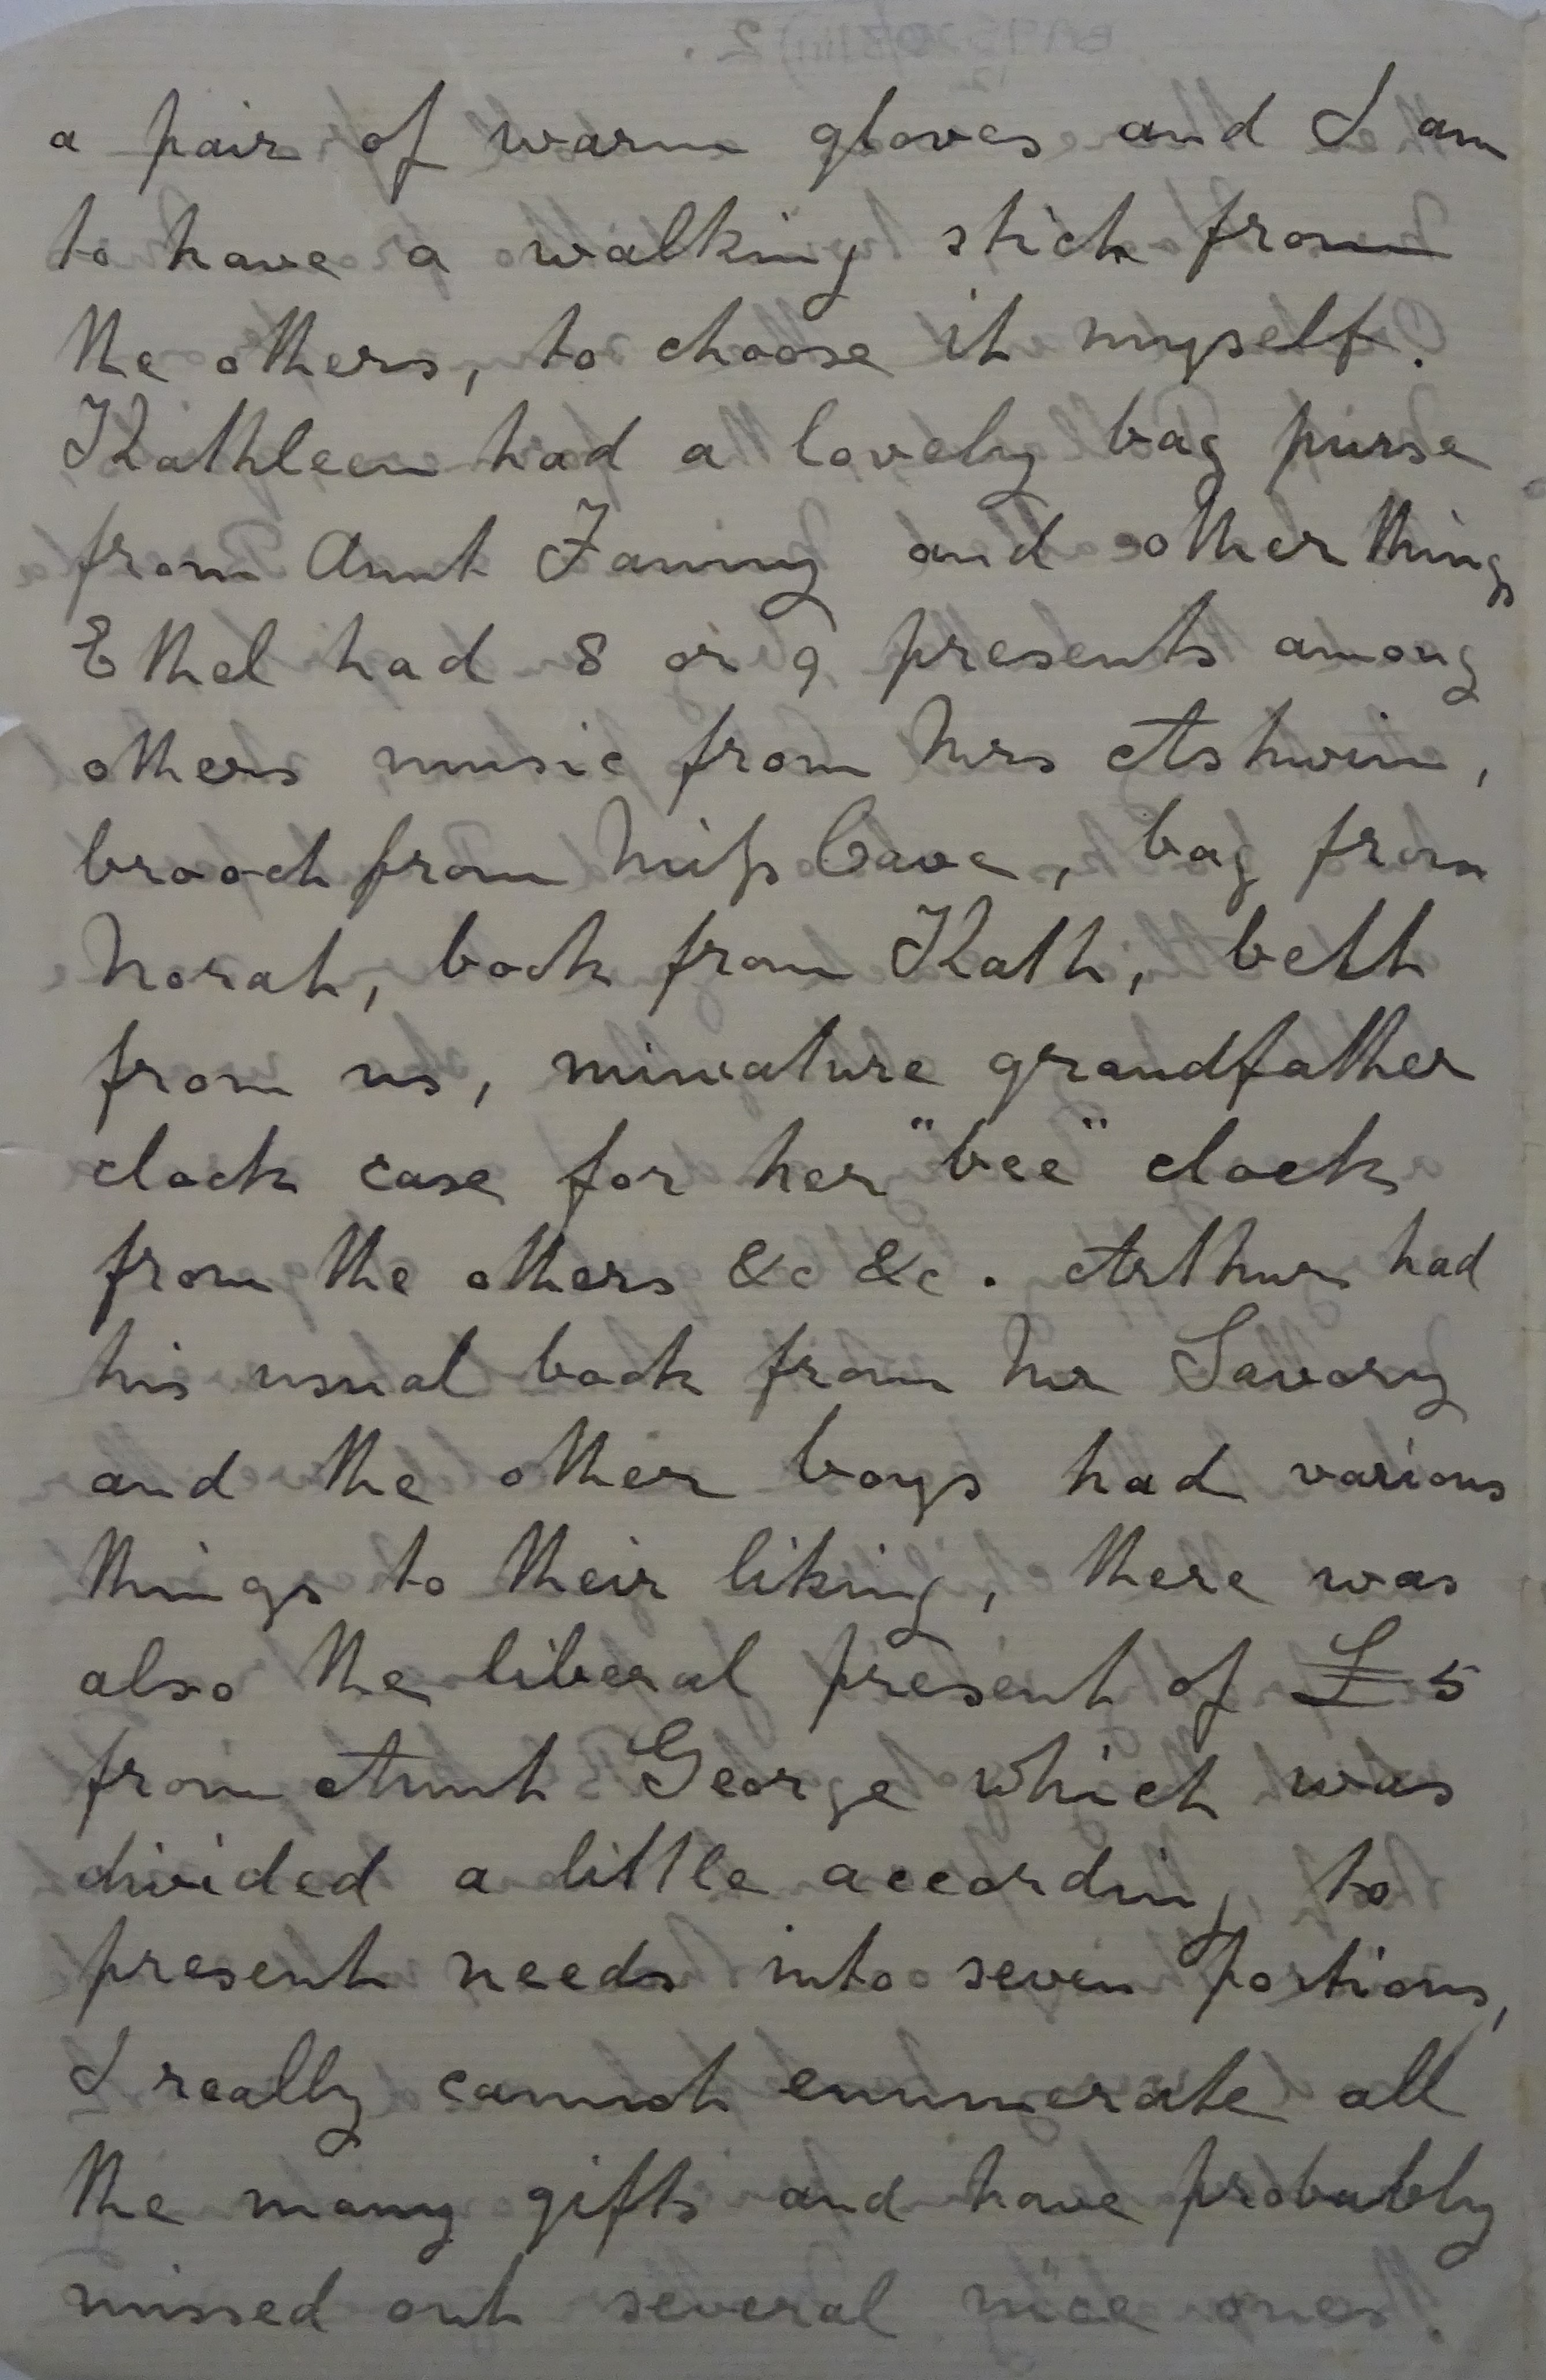 a pair of warm gloves and I am
to have a walking stick from
the others, to choose it myself.
Kathleen had a lovely bag purse
from Aunt Fanny and other things
Ethel had 8 or 9 presents among
others music from Mrs Ashwin,
brooch from Miss Cave, bag from
Norah, book from Kath, belt
from us, miniature grandfather
clock case for her "bee" clock
from the others &c &c. Arthur had
his usual book from Mr Savory
and the other boys had various
things to their liking, there was
also the liberal present of £5
from Aunt George which was
divided a little according to
present needs into seven portions,
I really cannot enumerate all
the many gifts and have probably
missed out several nice ones.